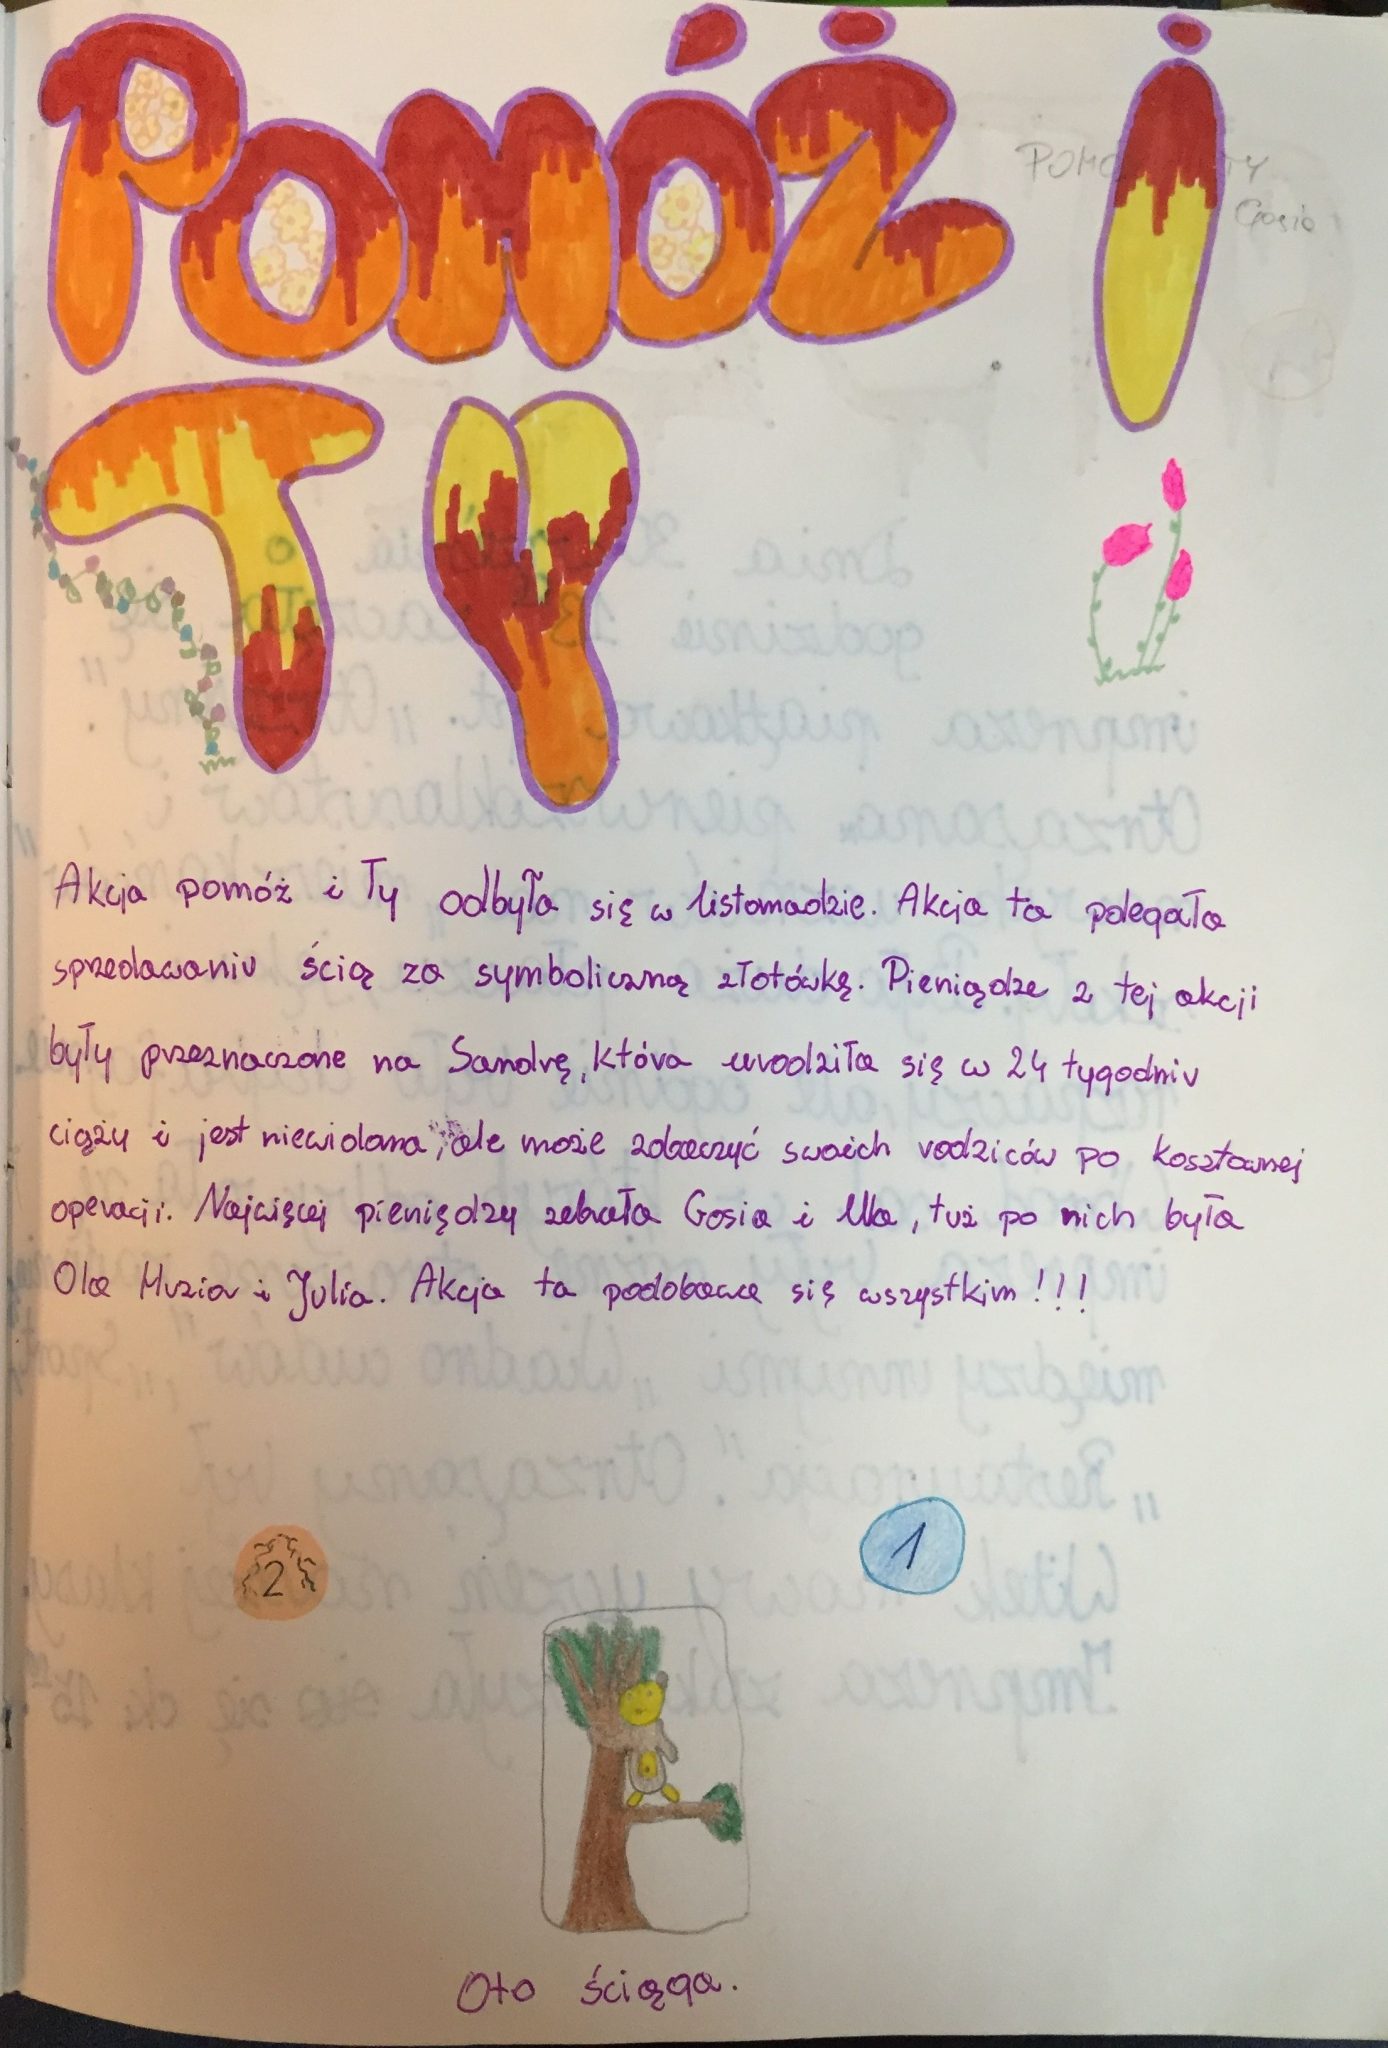 POMÓŻ I
TY
Gosia
Akcja pomóż i Ty odbyła się w listomadzie. Akcja ta polegała
sprzedawaniu ściąg za symboliczną złotówkę. Pieniądze z tej akcji
były przeznaczone na Sandrę, która urodziła się w 24 tygodniu
ciąży i jest niewidoma, ale może zobaczyć swoich rodziców po kosztownej
operacji. Najwięcej pieniędzy zebrała Gosia i Ula, tuż po nich była
Ola Muzia i Julia. Akcja ta podobawa się wszystkim!!!
2 1
Oto ściąga.